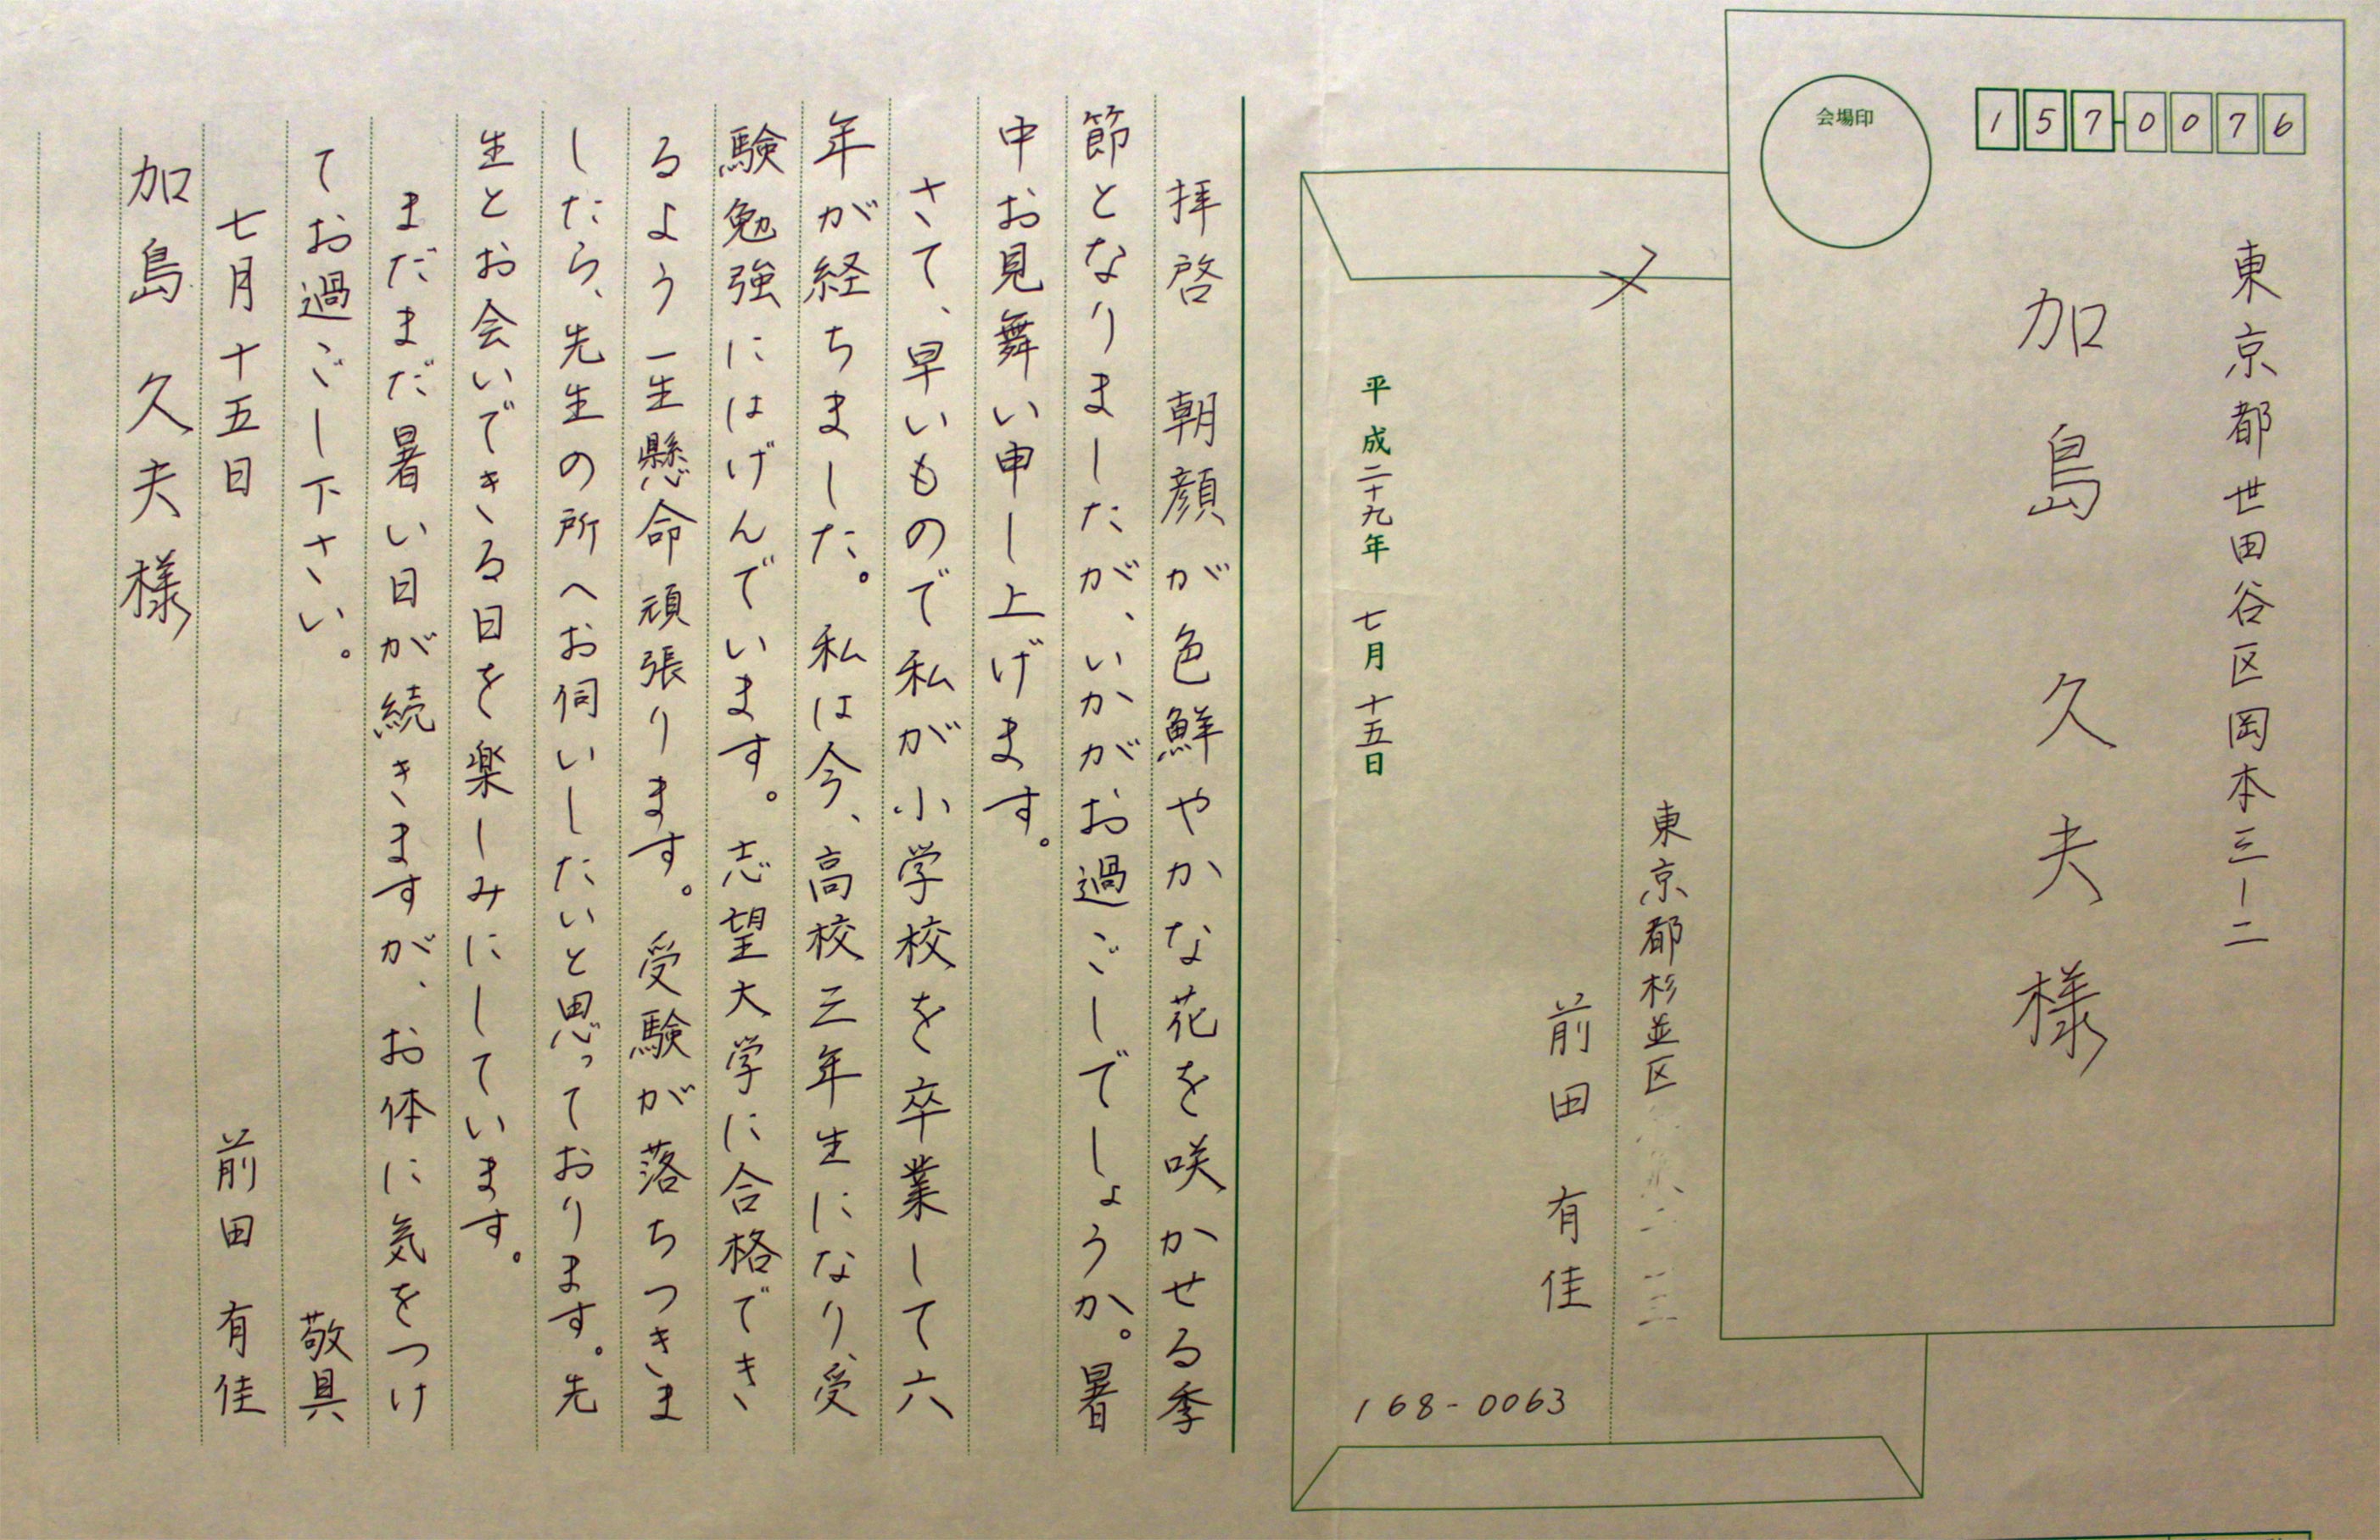 会場印
157-0076
東京都世田谷区岡本三ー二
加島 久夫様
〆
東京都杉並区
前田 有佳
168-0063
平成二十九年 七月 十五日
拝啓 朝顔が色鮮やかな花を咲かせる季
節となりましたが、いかがお過ごしでしょうか。暑
中お見舞い申し上げます。
さて、早いもので私が小学校を卒業して六
年が経ちました。私は今、高校三年生になり、受
験勉強にはげんでいます。志望大学に合格でき
るよう一生懸命頑張ります。受験が落ちつきま
したら、先生の所へお伺いしたいと思っております。先
生とお会いできる日を楽しみにしています。
まだまだ暑い日が続きますが、お体に気をつけ
てお過ごし下さい。 敬具
七月十五日 前田 有佳
加島 久夫様